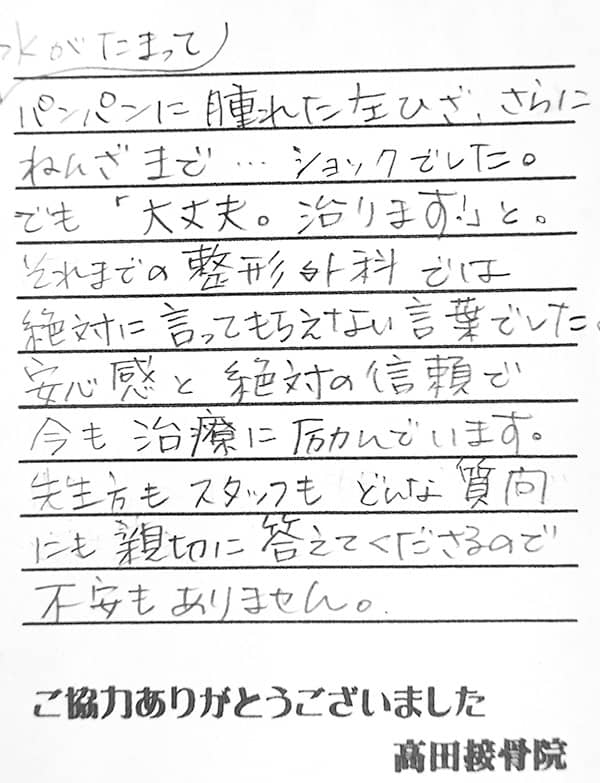 水がたまって
パンパンに腫れた左ひざ、さらに
ねんざまで…ショックでした。
でも「大丈夫。治ります!」と。
それまでの整形外科では
絶対に言ってもらえない言葉でした。
安心感と絶対の信頼で
今も治療に励んでいます。
先生方もスタッフもどんな質向
にも親切に答えてくださるので
不安もありません。
ご協力ありがとうございました
高田接骨院